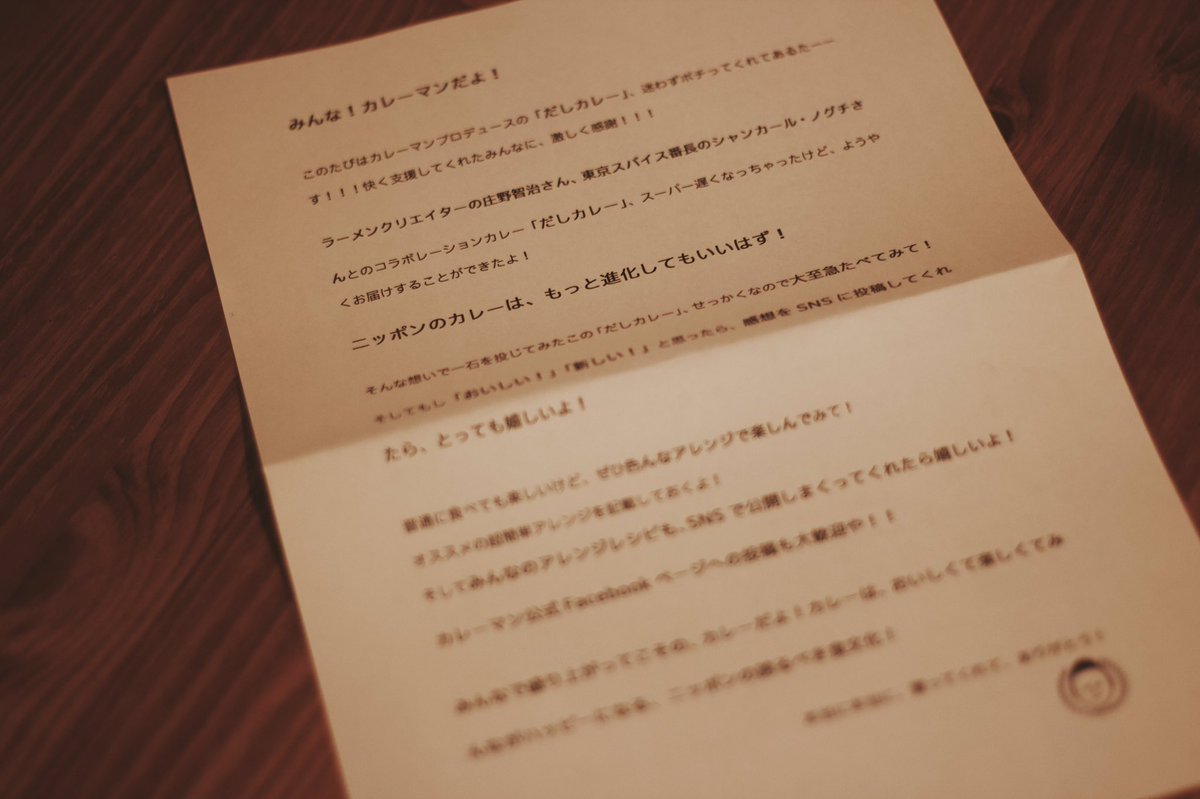 みんな！カレーマンだよ！
このたびはカレーマンプロデュースの「だしカレー」、迷わずポチってくれてあるたーー
す！！！快く支援してくれたみんなに、激しく感謝！！！
ラーメンクリエイターの庄野智治さん、東京スパイス番長のシャンカール・ノグチさ
んとのコラボレーションカレー「だしカレー」、スーパー遅くなっちゃったけど、ようや
くお届けすることができたよ！
ニッポンのカレーは、もっと進化してもいいはず！
そんな想いで一石を投じてみたこの「だしカレー」、せっかくなので大至急たべてみて！
そしてもし「おいしい！」「新しい！」と思ったら、感想を SNS に投稿してくれ
たら、とっても嬉しいよ！
普通に食べても楽しいけど、ぜひ色んなアレンジで楽しんでみて！
オススメの超簡単アレンジを記載しておくよ！
そしてみんなのアレンジレシピも、SNS で公開しまくってくれたら嬉しいよ！
カレーマン公式 Facebook ページへの投稿も大歓迎や！！
みんなで盛り上がってこその、カレーだよ！カレーは、おいしくて楽しくてみ
んながハッピーになる、ニッポンの誇るべき食文化！
買ってくれて、ありがとう！